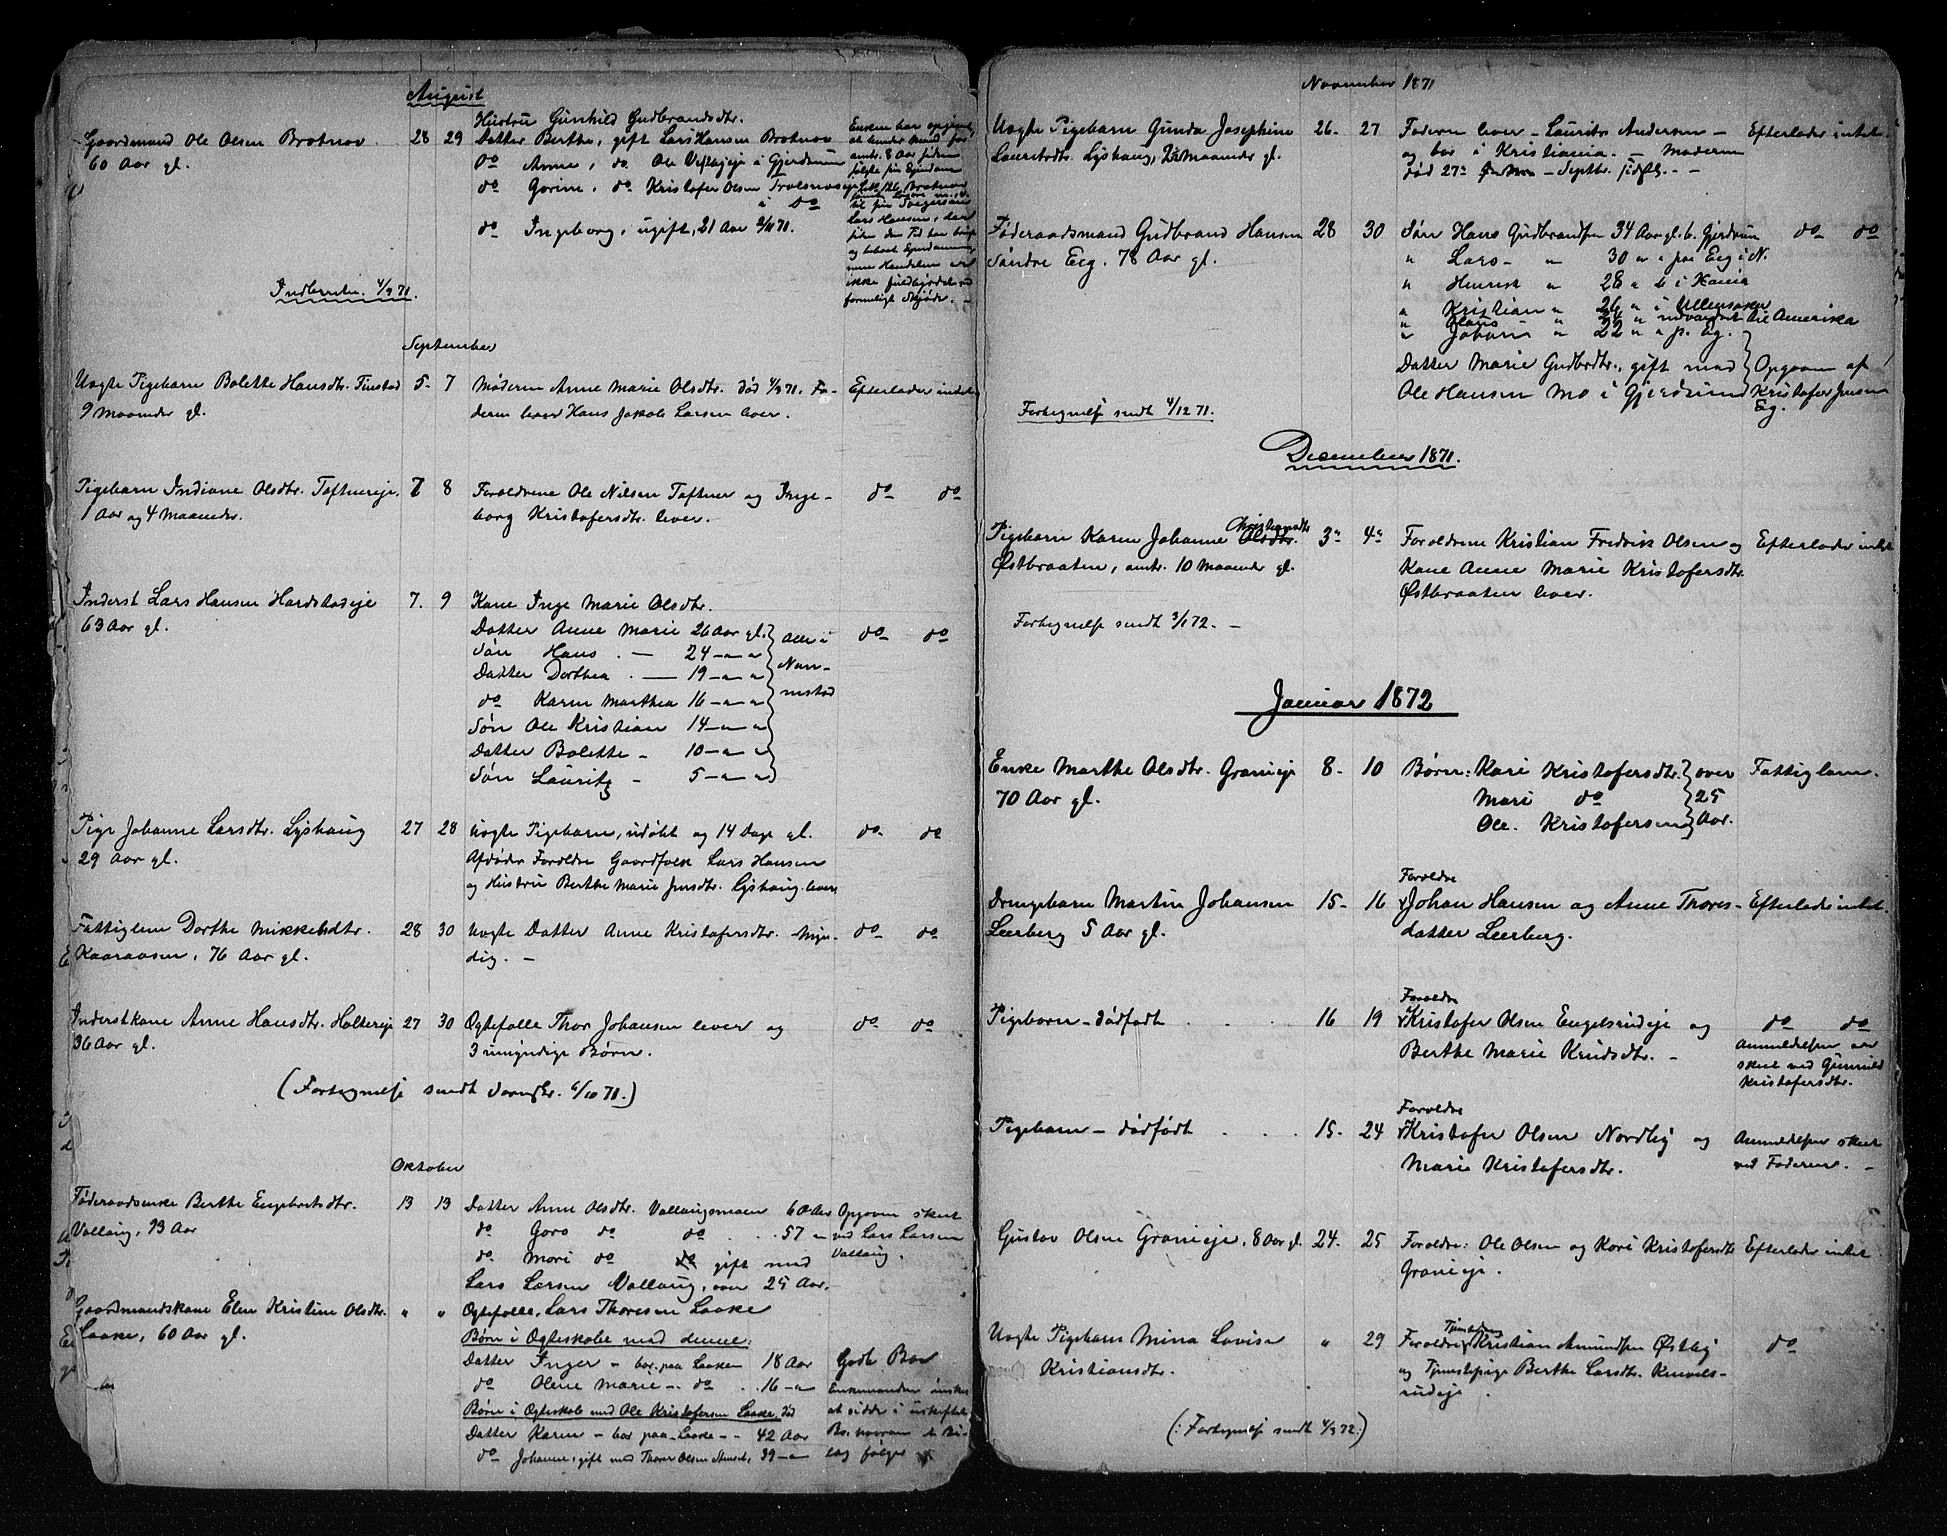 August
Gaardmand Ole Olsen Brotnov
60 Aar gl.
28 29
Hustru Gunhild Gudbrandsdtr.
Datter Berthe, gift Lars Hansen Brotnov
do Anne, do Ole i Gjerdrum
do Gorine, do Kristofer Olsen
i do
do Ingeborg, ugift, 21 Aar 2/11 71.
Enken har
8 Aar siden
til sin Svigersøn
Lars Hansen, der
siden den Tid har
og Eiendommen
men Handelen er
ikke
formeligt Skjøde. –
Indberette 4/9 71.
September
Uægte Pigebarn Bolette Hansdtr. Finstad
9 Maaneder gl.
5– 7
Moderen Anne Marie Olsdtr. død 4/9 71. Fa-
deren lever Hans Jakob Larsen lever.
Efterlader intet
Pigebarn Indiane Olsdtr. Toftnereje.
1 Aar og 4 Maaneder.
7 8
Forældrene Ole Nilsen Toftner og Inge-
borg Kristofersdtr. lever.
do do
Inderst Lars Hansen Hardstadeje
63 Aar gl.
7. 9
Kone Inge Marie Olsdtr.
Datter Anne Marie 26 Aar gl.
Søn Hans . – 24 – " "
Datter Dorthea . – 19 – " "
do Karen Marthea 16 – " "
Søn Ole Kristian 14 – " "
Datter Bolette – 10 – " "
Søn Lauritz – 5 – " "
Alle i
Nan-
nestad
do do
Pige Johanne Larsdtr. Lyshaug
29 Aar gl.
27 28
Uægte Pigebarn, udøbt og 14 Dage gl.
Afdøde Forældre Gaardfolk Lars Hansen
og Hustru Berthe Marie Jensdtr. Lyshaug lever
do do
Fattiglem Dorthe Mikkelsdtr.
Kaaraasen, 76 Aar gl.
28 30
Uægte Datter Anne Kristofersdtr. Myn-
dig. –
do do
Inderstkone Anne Hansdtr. Haltereje
36 Aar gl.
27 30
Ægtefælle Thor Johansen lever og
3 umyndige Børn.
do do
(Fortegnelse sendt 6/10 71.)
Oktober
Føderaadsenke Berthe Engebretsdtr.
Vallaug, 93 Aar
13 13
Datter Anne Olsdtr. Vallaugsmoen 60 Aar
do Goro do do . . . 57 –
do Mari do do gift med
Lars Larsen Vallaug, over 25 Aar.
Opgaven skeet
ved Lars Larsen
Vallaug.
Gaardmandskone Elen Kristine Olsdtr.
Laake, 60 Aar gl.
" "
Ægtefælle, Lars Thoresen Laake
Børn i Ægteskabe med denne:
Datter Inger – bor paa Laake 18 Aar
do Olene Marie – do . 16 – "
Børn i Ægteskab med Ole Kristofersen Laake, død
Datter Karen – bor paa Laake – – 42 Aar
do Johanne, gift med Thorer Olsen 39 – "
Godt Bo
Enkemanden ønsker
at sidde i uskiftet
Bo, hvorom et Bi-
lag følger
November 1871
Uægte Pigebarn Gunda Josephine
Lauritzdtr. Lyshaug, Maaneder gl.
26– 27
Faderen lever – Lauritz Andersen –
og bor i Kristiania. – Moderen
død 27de – Septbr. sidstl. – –
Efterlader intet
Føderaadsmand Gudbrand Hansen
Søndre Eeg. 78 Aar gl.
28 30
Søn Hans Gudbrandsen 34 Aar gl. b. Gjerdrum
" Lars – " 30 " " paa Eeg i N.
" Henrik " 28 " b i Xania
" Kristian " 26 " i Ullensaker
" Hans " " udvandret til Amerika
" Johan " 22 " " p. Eg.
Datter Marie Gudbrdtr., gift med
Ole Hansen Mo i Gjerdrum
do do
Opgaven af
Kristofer Jensen
Eg.
Fortegnelse sendt 4/12 71.
December 1871.
Pigebarn Karen Johanne Olsdtr. Christiansdtr
Østbraaten, omtr. 10 Maaneder gl.
3" 4"
Forældrene Kristian Fredrik Olsen og
Kone Anne Marie Kristofersdtr.
Østbraaten lever.
Efterlader intet
Fortegnelse sendt 3/1 72. –
Januar 1872
Enke Marthe Olsdtr. Granieje
70 Aar gl.
8– 10
Børn: Kari Kristofersdtr.
Mari do
Ole. Kristofersen
over
25
Aar.
Fattiglem.
Drengebarn Martin Johansen
Leerberg 5 Aar gl.
15– 16
Forældre
Johan Hansen og Anne Thores-
datter Leerberg.
Efterlader intet.
Pigebarn – dødfødt . . . .
16 19
Forældre
Kristofer Olsen Engelsrudeje og
Berthe Marie Knudsdtr. –
do do
Anmeldelsen er
skeet ved Gunnild
Kristofersdtr.
Pigebarn – dødfødt . . . .
15– 24
Forældre
Kristofer Olsen Nordby og
Marie Kristofersdtr.
Anmeldelsen skeet
ved Faderen. –
Gustav Olsen Granieje, 8 Aar gl.
24. 25
Forældre: Ole Olsen og Kari Kristofersdtr
Granieje.
Efterlader intet
Uægte Pigebarn Mina Lovise
Kristiansdtr.
" 29
Forældre Tjenestedreng Kristian Amundsen Østby
og Tjenestepige Berthe Larsdtr.
rudeje.
do
(: Fortegnelse sendt 4/2 72:)